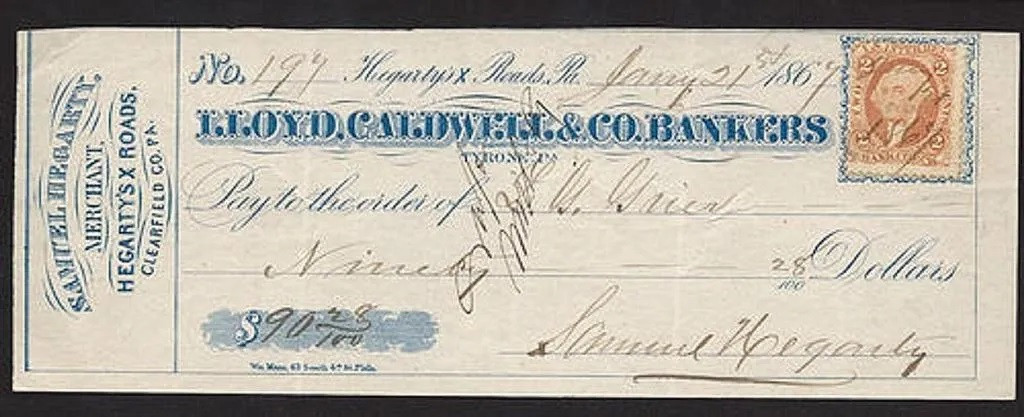 SAMUEL HEGARTY,
MERCHANT,
HEGARTY'S X ROADS,
CLEARFIELD CO. PA.
No. 197 Hegarty's X Roads, Pa. Jany 21st 1867
LLOYD, CALDWELL & CO. BANKERS
TYRONE, PA
Pay to the order of
Ninety 28/100 Dollars
$90 28/100
Samuel Hegarty
Wm. Mann, 43 South 4th St. Phila.
U.S. INTER. REV.
2 2
BANK CHECK